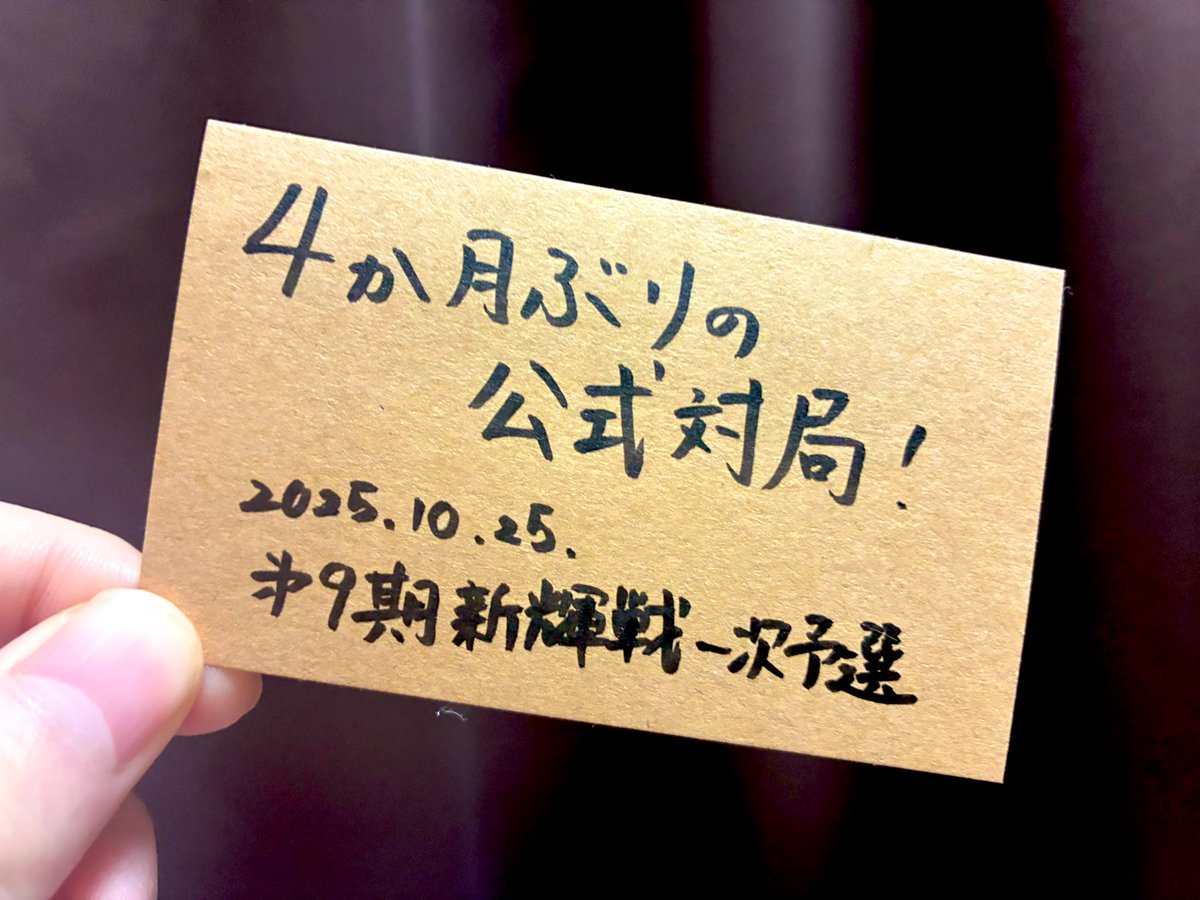 4か月ぶりの
公式対局!
2025.10.25.
第9期新輝戦一次予選